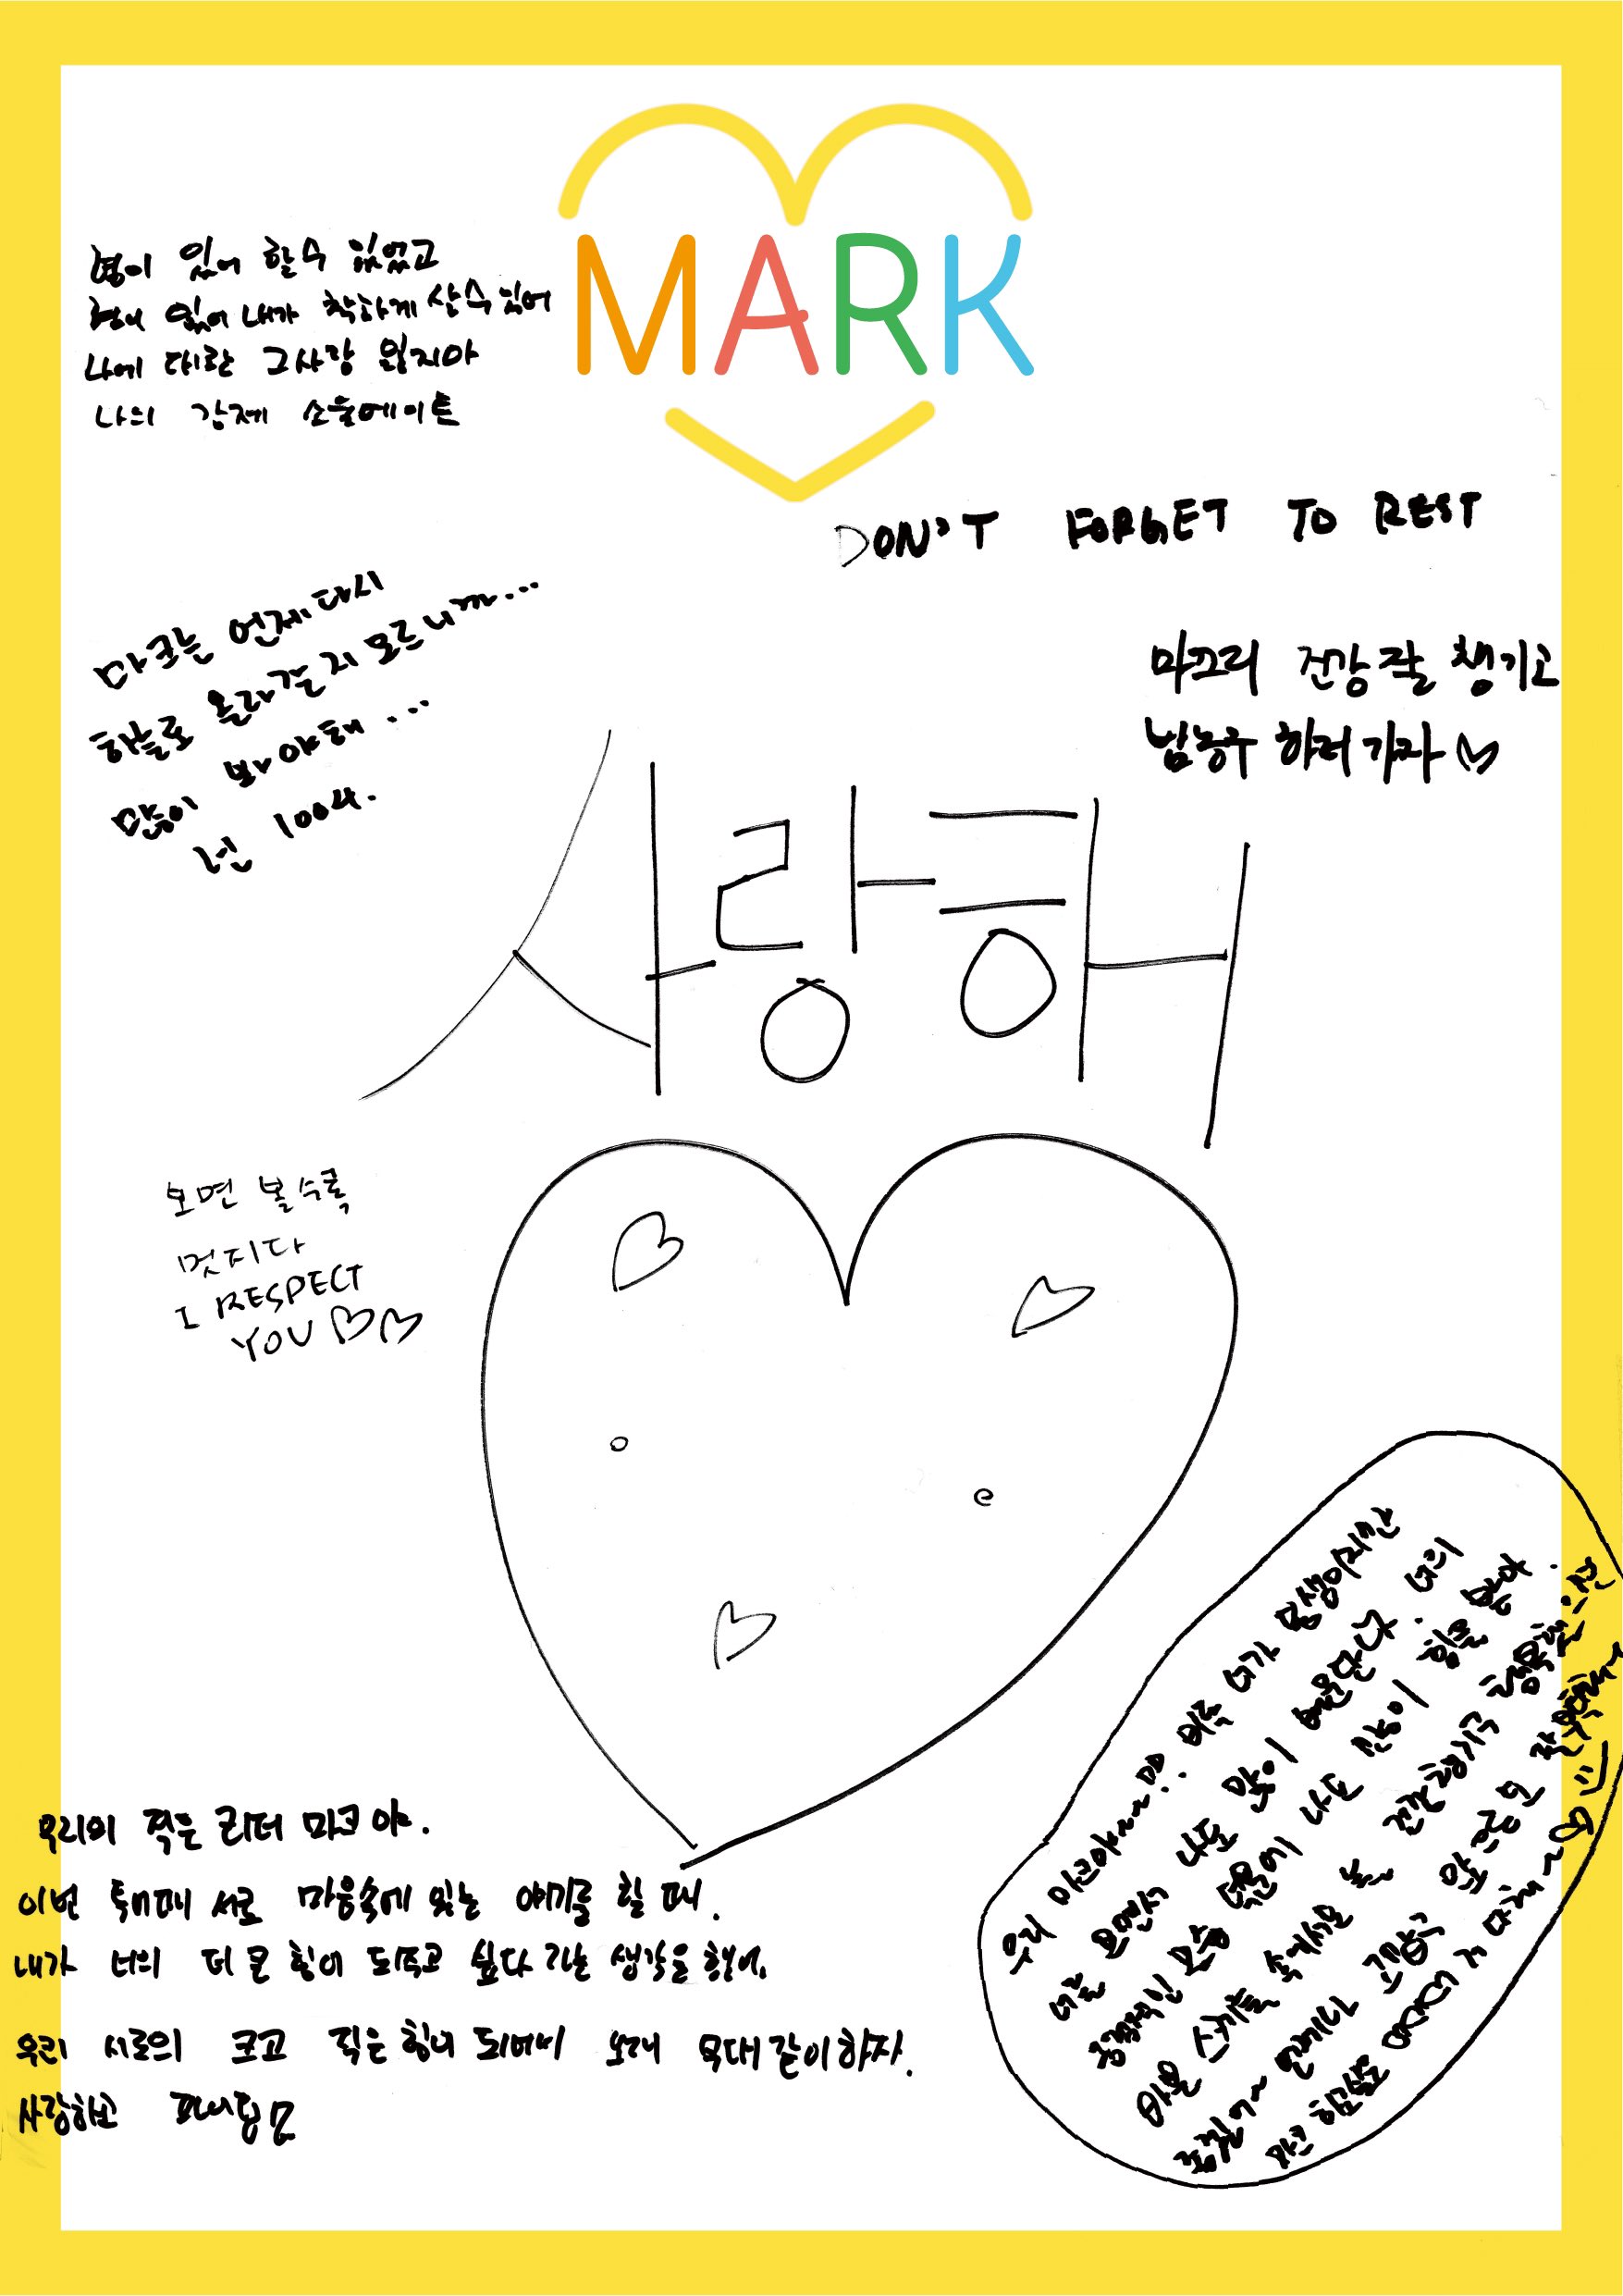 MARK
형이 있어 할수 있었고
형이 있어 내가 착하게 살수있어
나에 대한 그사랑 잃지마
나의 강제 소울메이트
DON'T FORGET TO REST
마크는 언제다시
하늘로 올라갈지 모르니까...
많이 봐야해...
넌 1004.
마끄리 건강 잘 챙기고
밤농구 하러가자
사랑해
보면 볼수록
멋지다
I RESPECT
YOU
우리 마크야~~!! 비록 너가 동생이지만
너를 보면서 나도 많이 배운단다. 너의
긍정적인 모습 덕분에 나도 많이 힘을 받아.
바쁜 스케줄 속에서도 늘 건강챙기구 행복했으면
좋겠어~ 언제나 고맙구 앞으로도 잘부탁해~
마크 힘내 사랑해~
우리의 작은 리더 마크야.
이번 투어때 서로 마음속에 있는 얘기를 할 때,
내가 너의 더 큰 힘이 되주고 싶다 라는 생각을 했어.
우리 서로의 크고 작은 힘이 되어서 오래 무대 같이하자.
사랑하고